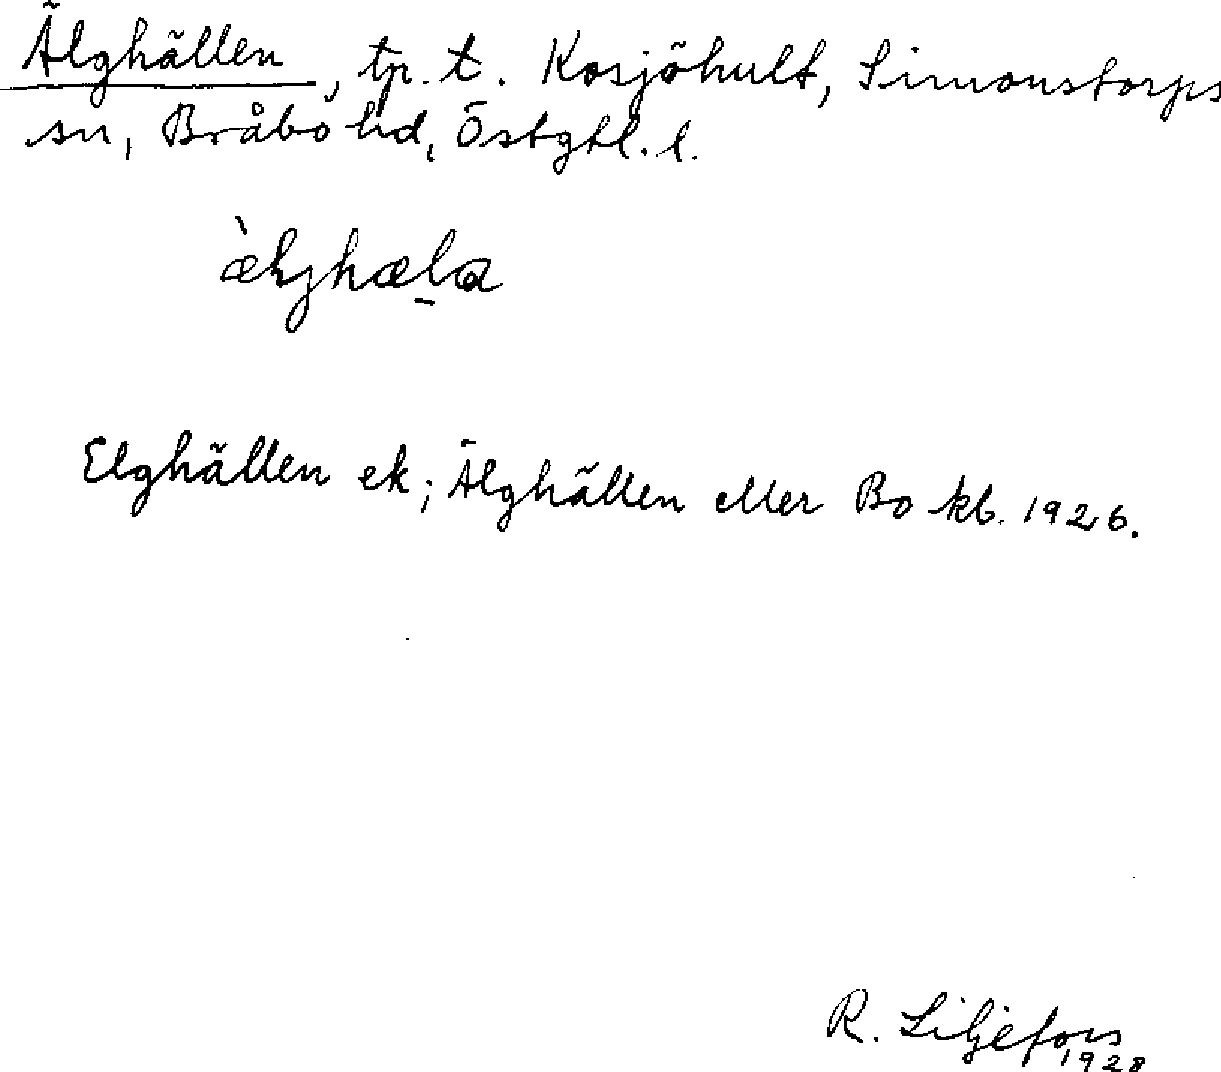 Älghällen, tp. t. Kosjöhult, Simonstorps
sn, Bråbo hd, Östgtl. l.
Elghällen ek; Älghällen eller Bo kb. 1926.
R. Liljefors
1928